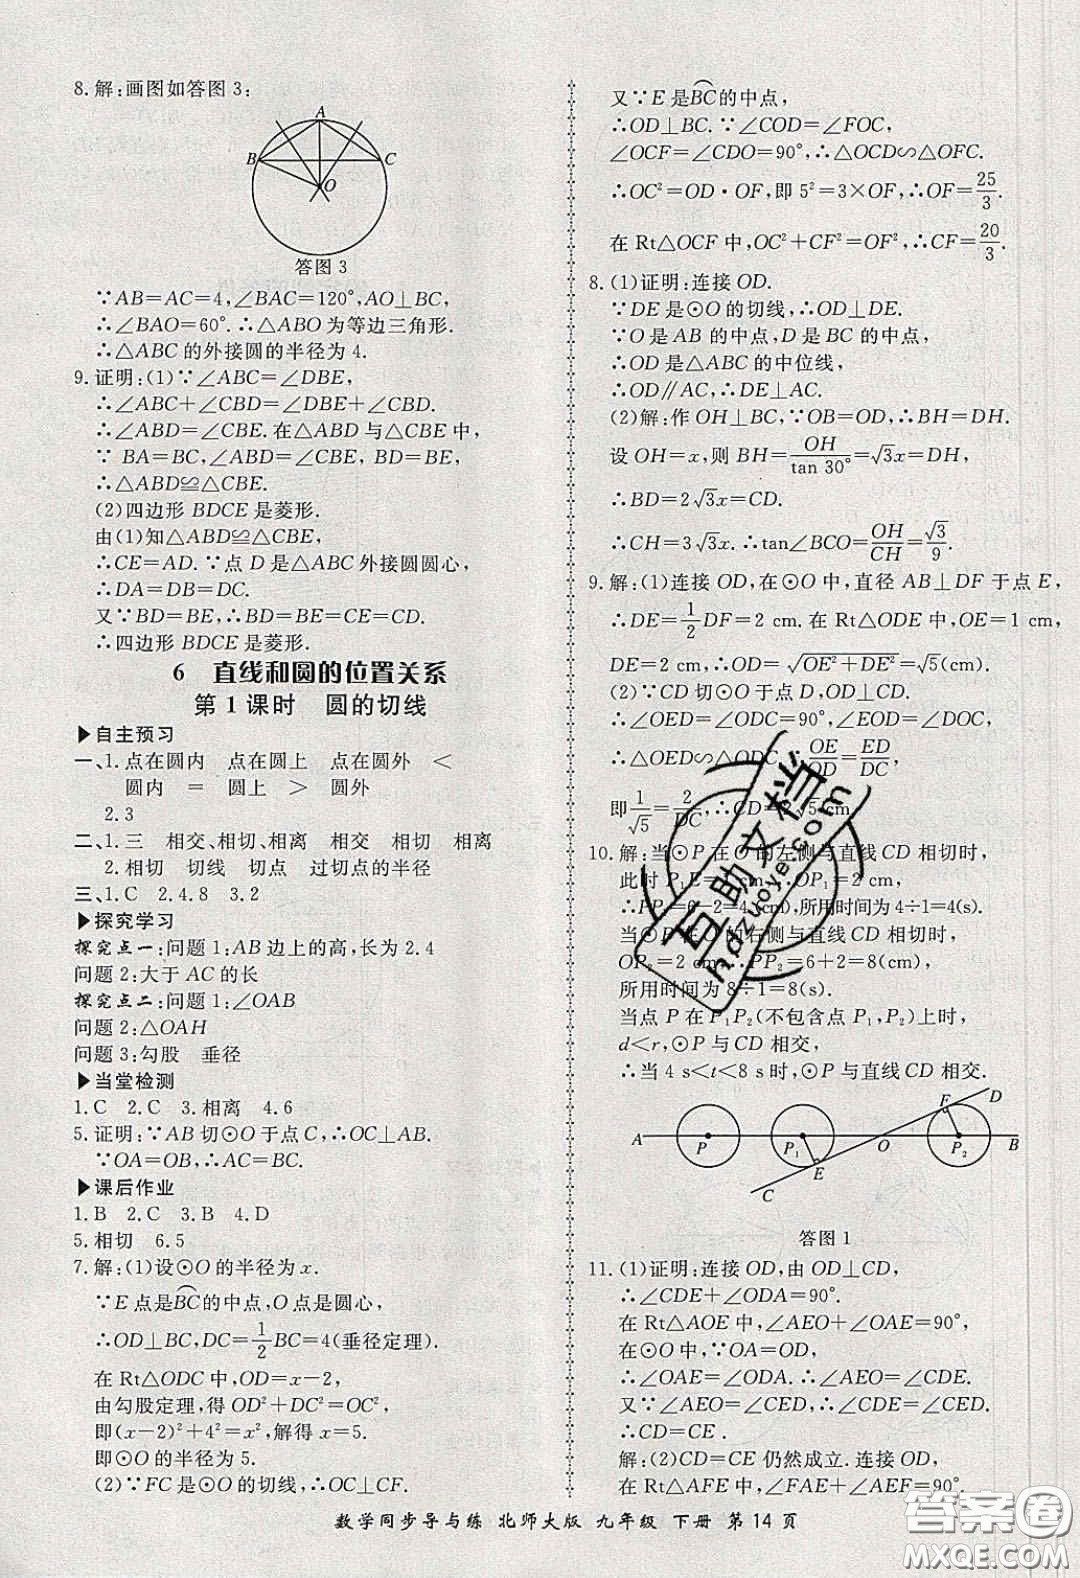 8.解:画图如答图 3:
A
B
C
O
答图 3
∵AB=AC=4,∠BAC=120°,AO⊥BC,
∴∠BAO=60°.∴△ABO为等边三角形.
∴△ABC的外接圆的半径为 4.
9.证明:(1)∵∠ABC=∠DBE,
∴∠ABC+∠CBD=∠DBE+∠CBD.
∴∠ABD=∠CBE.在△ABD与△CBE中,
∵ BA=BC,∠ABD=∠CBE,BD=BE,
∴△ABD≌△CBE.
(2)四边形 BDCE 是菱形.
由(1)知△ABD≌△CBE,
∴CE=AD.∵点 D 是△ABC外接圆圆心,
∴DA=DB=DC.
又∵BD=BE,∴BD=BE=CE=CD.
∴四边形 BDCE是菱形.
6 直线和圆的位置关系
第 1 课时 圆的切线
▶自主预习
一、1.点在圆内 点在圆上 点在圆外 <
圆内 = 圆上 > 圆外
2.3
二、1.三 相交、相切、相离 相交 相切 相离
2.相切 切线 切点 过切点的半径
三、1.C 2.4.8 3.2
▶探究学习
探究点一:问题 1:AB边上的高,长为 2.4
问题 2:大于 AC的长
探究点二:问题 1:∠OAB
问题 2:△OAH
问题 3:勾股 垂径
▶当堂检测
1.C 2.C 3.相离 4.6
5.证明:∵AB切⊙O于点C,∴OC⊥AB.
∵OA=OB,∴AC=BC.
▶课后作业
1.B 2.C 3.B 4.D
5.相切 6.5
7.解:(1)设⊙O的半径为x.
∵E 点是BC的中点,O点是圆心,
∴OD⊥BC,DC=1/2BC=4(垂径定理).
在 Rt△ODC中,OD=x-2,
由勾股定理,得 OD²+DC²=OC²,
即(x-2)²+4²=x²,解得x=5.
即⊙O的半径为 5.
(2)∵FC是⊙O的切线,∴OC⊥CF.
又∵E是BC的中点,
∴OD⊥BC.∵∠COD=∠FOC,
∠OCF=∠CDO=90°,∴△OCD∽△OFC.
∴OC²=OD·OF,即 5²=3×OF,∴OF=25/3.
在 Rt△OCF中,OC²+CF²=OF²,∴CF=20/3.
8.(1)证明:连接OD.
∵DE是⊙O的切线,∴OD⊥DE.
∵O是 AB 的中点,D 是 BC 的中点,
∴OD 是△ABC的中位线,
∴OD∥AC,∴DE⊥AC.
(2)解:作OH⊥BC,∵OB=OD,∴BH=DH.
设 OH=x,则 BH=OH/tan 30°=√3x=DH,
∴BD=2√3x=CD.
∴CH=3√3x.∴tan∠BCO=OH/CH=√3/9.
9.解:(1)连接 OD,在⊙O 中,直径 AB⊥DF 于点 E,
∴DE=1/2DF=2 cm.在 Rt△ODE 中,OE=1 cm,
DE=2 cm,∴OD=√OE²+DE²=√5(cm).
(2)∵CD 切⊙O于点D,∴OD⊥CD.
∴∠OED=∠ODC=90°,∠EOD=∠DOC,
∴△OED∽△ODC.∴OE/OD=ED/DC,
即1/√5=2/DC,∴CD=2√5 cm.
10.解:当⊙P 在 O 的左侧与直线 CD 相切时,
此时 P₁E=1 cm,∴OP₁=2 cm,
∴PP₁=6-2=4(cm),所用时间为4÷1=4(s).
当⊙P在O的右侧与直线CD 相切时,
OP₂=2 cm,∴PP₂=6+2=8(cm),
所用时间为8÷1=8(s).
当点 P 在 P₁P₂(不包含点 P₁,P₂)上时,
d<r,⊙P与CD相交.
∴当 4 s<t<8 s时,⊙P与直线CD相交.
A
P
P₁
E
C
O
F
D
P₂
B
答图 1
11.(1)证明:连接 OD,由 OD⊥CD,
∴∠CDE+∠ODA=90°.
在 Rt△AOE 中,∠AEO+∠OAE=90°,
在⊙O中,∵OA=OD,
∴∠OAE=∠ODA.∴∠AEO=∠CDE.
又∵∠AEO=∠CED,∴∠CDE=∠CED,
∴CD=CE .
解:(2)CD=CE 仍然成立.连接 OD,
在 Rt△AFE 中,∠FAE+∠AEF=90°.
数学同步导与练 北师大版 九年级 下册 第 14 页
互助文档
hdzuoye.com
答案圈
MXQE.COM